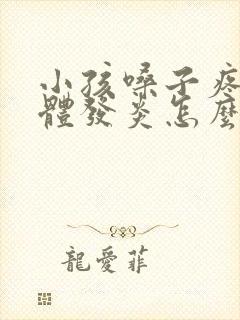 小孩嗓子疼
體發炎怎麼
龍愛菲